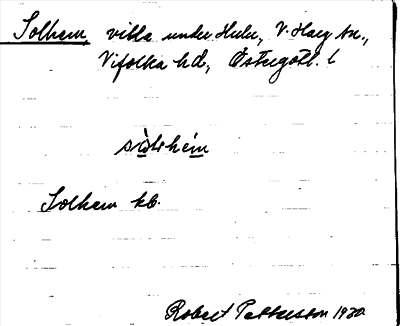 Solhem, villa under Hulu, V. Harg sn.,
Vifolka hd, Östergötl. l
sὼlhém
Solhem kb.
Robert Pettersson 1930